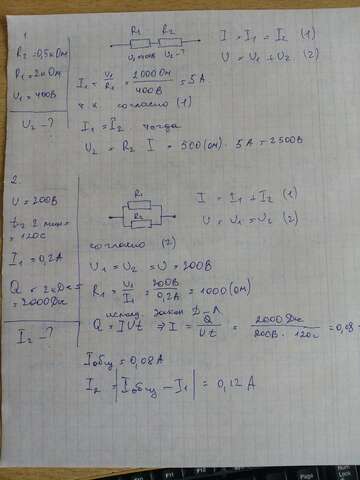 1
R₂ = 0,5 кОм
R₁ = 2 кОм
U₁ = 400В
U₂ - ?
R₁ R₂
U₁=400В U₂-?
I = I₁ = I₂ (1)
U = U₁ + U₂ (2)
I₁ = U₁/R₁ = 2000 Ом/400 В = 5 A
т.к. согласно (1)
I₁ = I₂ тогда
U₂ = R₂ I = 500 (ом) · 5 A = 2500 В
2.
U = 200В
t = 2 мин =
= 120с
I₁ = 0,2 А
Q = 2 кДж =
= 2000 Дж
I₂ - ?
R₁
R₂
I = I₁ + I₂ (1)
U = U₁ = U₂ (2)
согласно (2)
U₁ = U₂ = U = 200В
R₁ = U₁/I₁ = 200В/0,2А = 1000 (ом)
закон Д-Л
Q = IUt ⇒ I = Q/Ut = 2000 Дж/200В · 120с = 0,08
Iобщ = 0,08 А
I₂ = |Iобщ - I₁| = 0,12 А